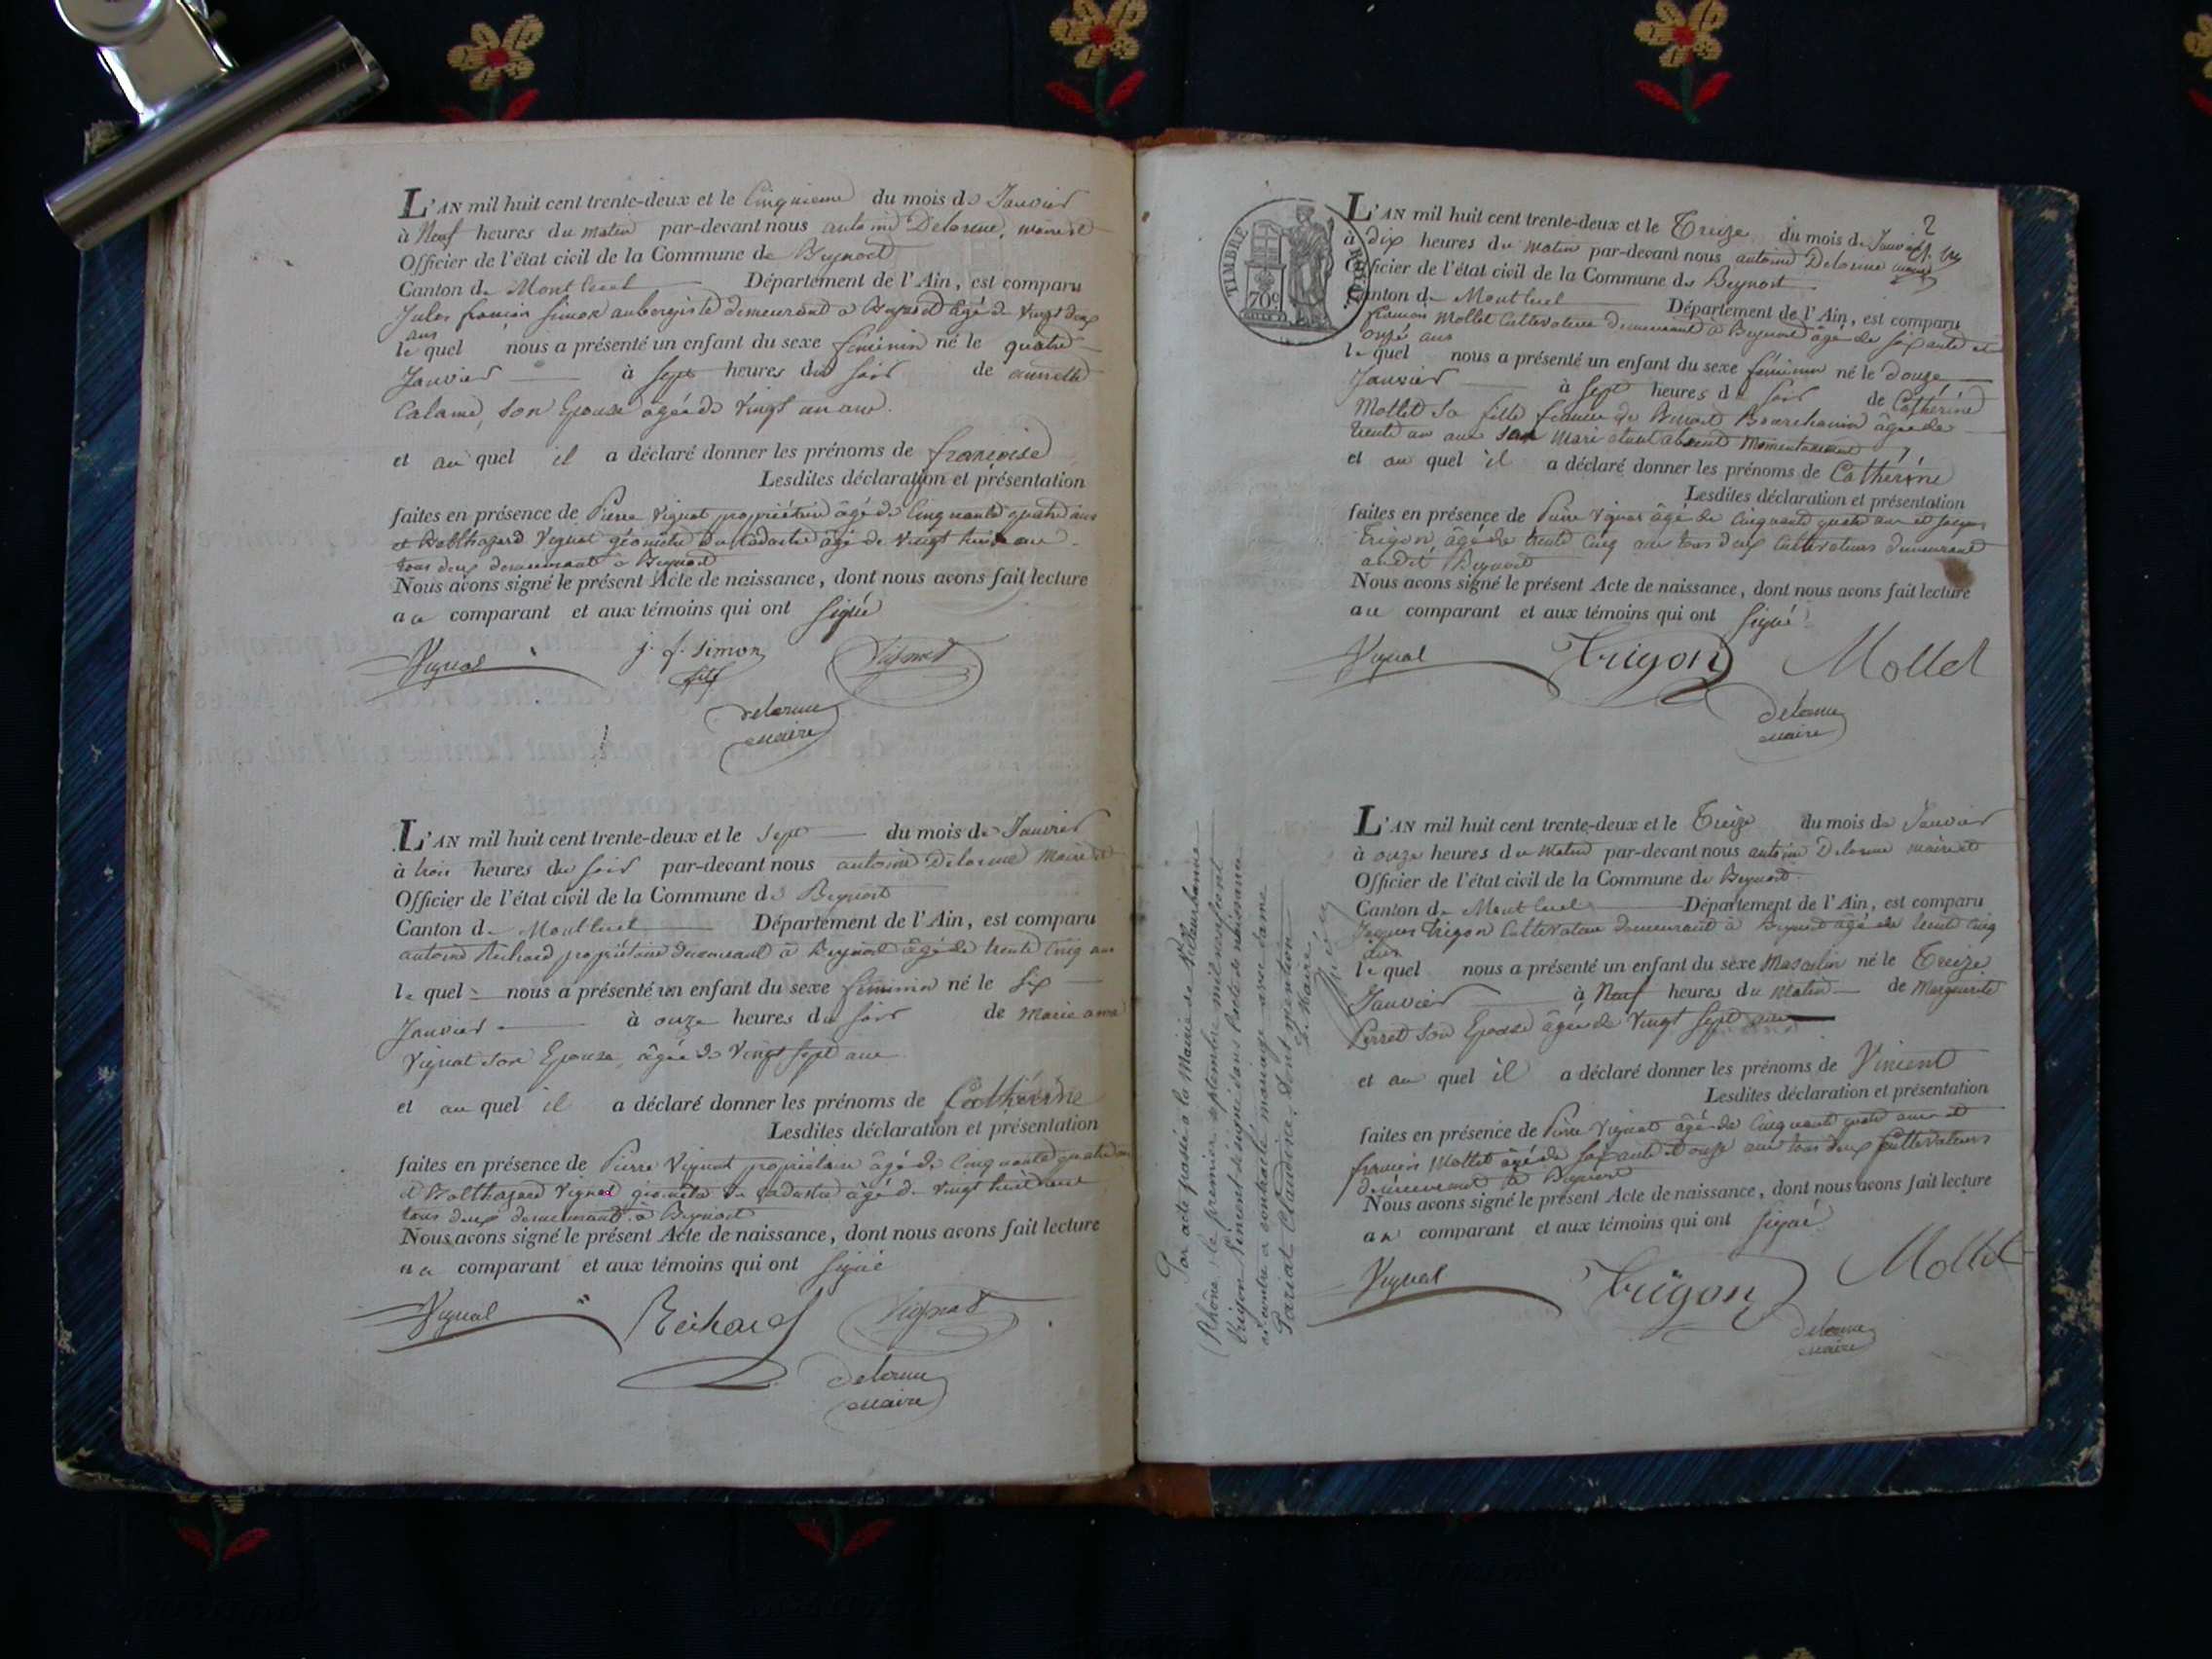 L'AN mil huit cent trente-deux et le Cinquieme du mois de Janvier
à Neuf heures du matin par-devant nous antoine Delorme, maire et
Officier de l'état civil de la Commune de Beynost
Canton de Montluel Département de l'Ain, est comparu
Jules françois Simon aubergiste demeurant a Beynost âgé de Vingt deux
ans
le quel nous a présenté un enfant du sexe féminin né le quatre
Janvier à sept heures du soir de annette
Calame, son Epouse âgée de Vingt un ans.
et au quel il a déclaré donner les prénoms de françoise
Lesdites déclaration et présentation
faites en présence de Pierre Vignat propriétaire âgé de Cinquante quatre ans
et Balthazard Vignat géometre du Cadastre âgé de Vingt huit ans
tous deux demeurant à Beynost
Nous avons signé le présent Acte de naissance, dont nous avons fait lecture
au comparant et aux témoins qui ont signé
Vignat j. f. Simon Vignat
fils
delorme
maire
L'AN mil huit cent trente-deux et le Sept du mois de Janvier
à trois heures du soir par-devant nous antoine Delorme Maire et
Officier de l'état civil de la Commune de Beynost
Canton de Montluel Département de l'Ain, est comparu
antoine Richard propriétaire demeurant à Beynost âgé de trente Cinq ans
le quel nous a présenté un enfant du sexe féminin né le Six
Janvier à onze heures du soir de Marie anne
Vignat son Epouse, âgée de Vingt Sept ans
et au quel il a déclaré donner les prénoms de Cathérine
Lesdites déclaration et présentation
faites en présence de Pierre Vignat propriétaire âgé de Cinquante quatre ans
et Balthazard Vignat géometre du cadastre âgé de Vingt huit ans
tous deux demeurant à Beynost
Nous avons signé le présent Acte de naissance, dont nous avons fait lecture
au comparant et aux témoins qui ont signé
Vignat Richard Vignat
delorme
maire
2
TIMBRE ROYAL
70c
L'AN mil huit cent trente-deux et le Treize du mois de Janvier
à dix heures du matin par-devant nous antoine Delorme maire
Officier de l'état civil de la Commune de Beynost
Canton de Montluel Département de l'Ain, est comparu
françois Mollet Cultivateur demeurant à Beynost âgé de soixante et
onze ans
le quel nous a présenté un enfant du sexe féminin né le douze
Janvier à Sept heures du soir de Cathérine
Mollet sa fille femme de Benoit âgée de
trente un ans son mari étant absent momentanement
et au quel il a déclaré donner les prénoms de Cathérine
Lesdites déclaration et présentation
faites en présence de Pierre Vignat âgé de Cinquante quatre ans et Jacques
Trigon âgé de trente Cinq ans tous deux Cultivateurs demeurant
audit Beynost
Nous avons signé le présent Acte de naissance, dont nous avons fait lecture
au comparant et aux témoins qui ont signé
Vignat Trigon Mollet
delorme
maire
L'AN mil huit cent trente-deux et le Treize du mois de Janvier
à onze heures du matin par-devant nous antoine Delorme maire et
Officier de l'état civil de la Commune de Beynost
Canton de Montluel Département de l'Ain, est comparu
Jacques Trigon Cultivateur demeurant à Beynost âgé de trente Cinq
ans
le quel nous a présenté un enfant du sexe Masculin né le Treize
Janvier à Neuf heures du Matin de Marguerite
Perret son Epouse âgée de Vingt Sept ans
et au quel il a déclaré donner les prénoms de Vincent
Lesdites déclaration et présentation
faites en présence de Pierre Vignat âgé de Cinquante quatre ans et
françois Mollet âgé de soixante et onze ans tous deux Cultivateurs
demeurant à Beynost
Nous avons signé le présent Acte de naissance, dont nous avons fait lecture
au comparant et aux témoins qui ont signé
Vignat Trigon Mollet
delorme
maire
Par acte passé à la Mairie de Villeurbanne
(Rhône) le premier septembre mil neuf cent
Trigon Vincent désigné dans l'acte de naissance
ci contre a contracté mariage avec dame
Pariat Claudine, Dont mention
Le Maire,